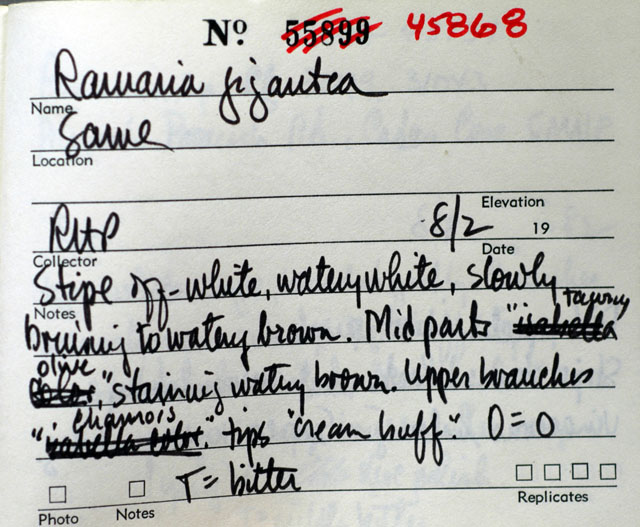 Nº 55899 45868
Ramaria gigantea
Name
Same
Location
Elevation
RHP 8/2 19
Collector Date
Stipe off-white, watery white, slowly
Notes
tawny
bruising to watery brown. Mid parts "isabella
olive
color," staining watery brown. Upper branches
chamois
"isabella color." tips "cream buff". O = O
T = bitter
Photo Notes Replicates